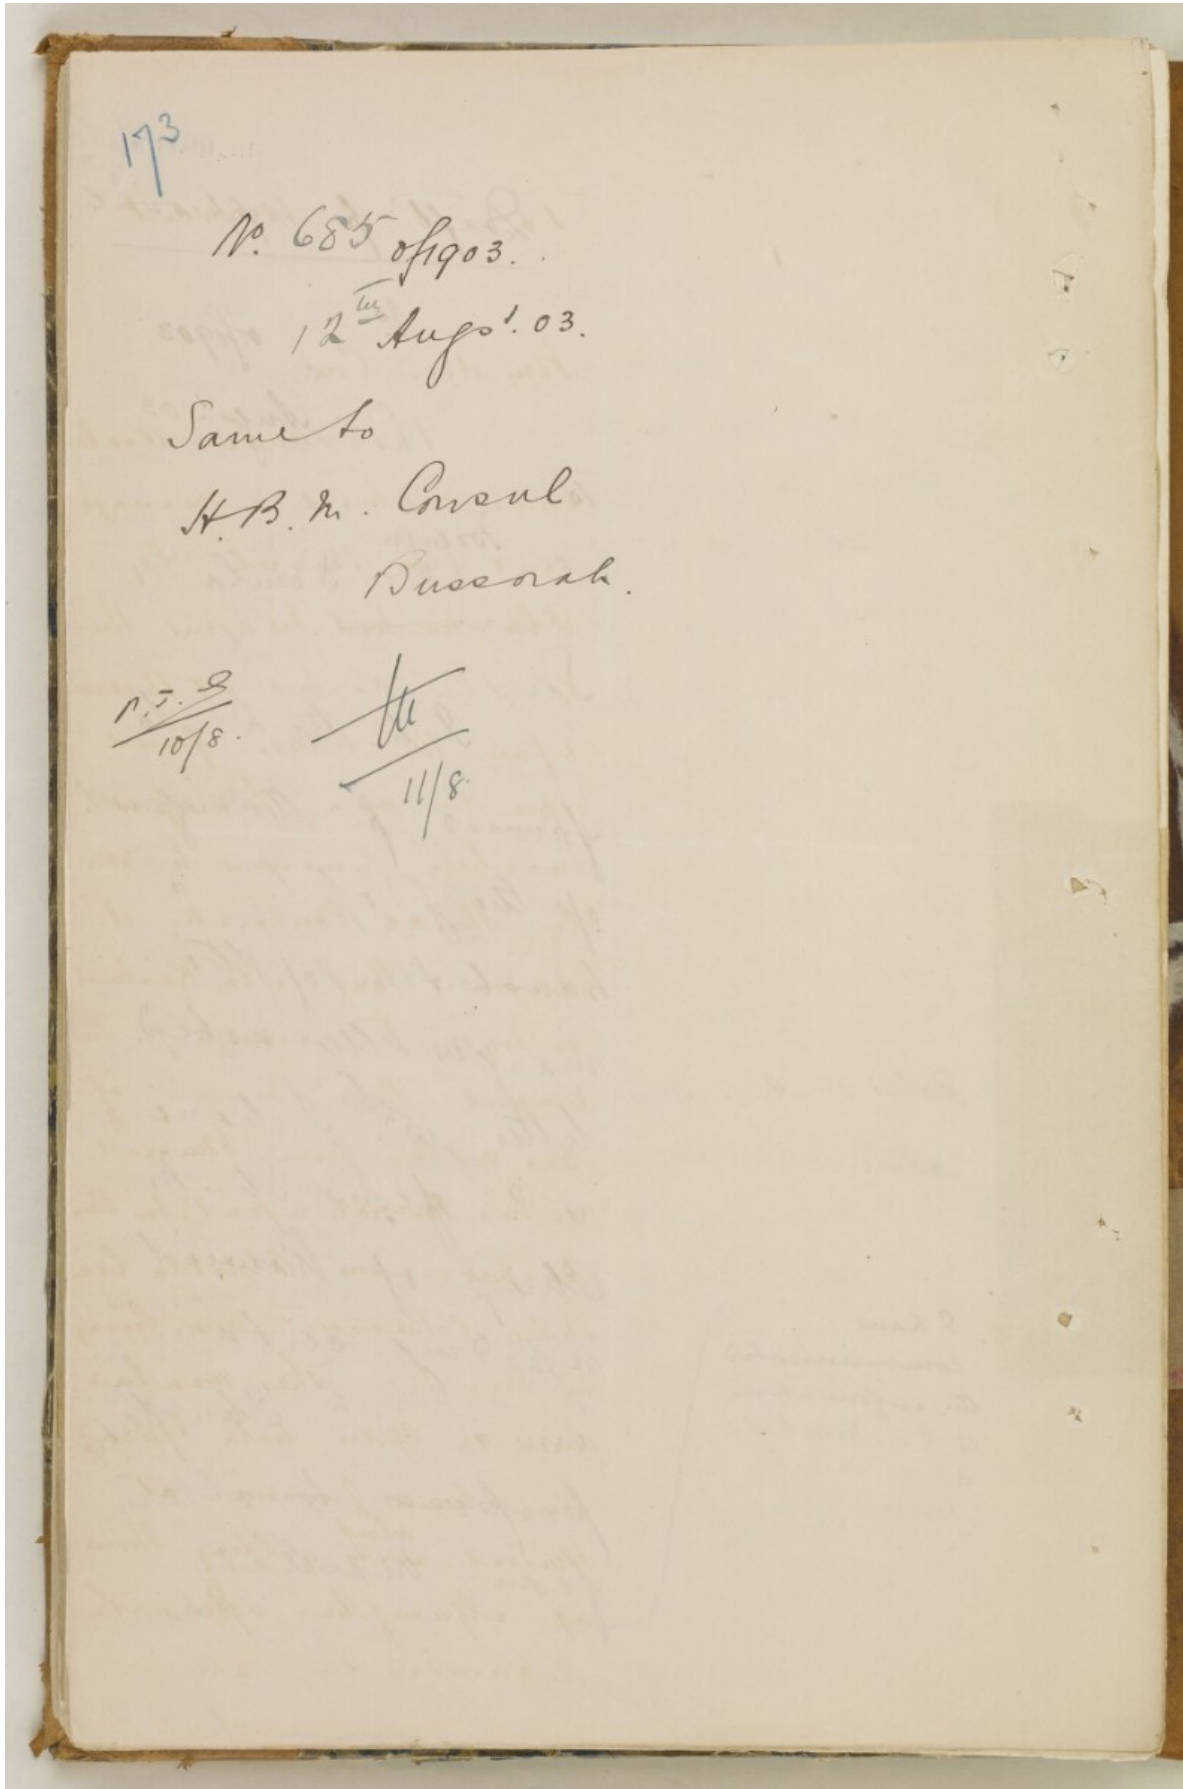 173
No. 685 of 1903.
12th Augst. 03.
Same to
H.B.M. Consul
Bussorah.
10/8.
11/8.